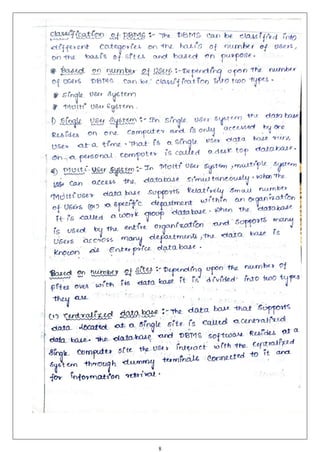 Classification of DBMS :- The DBMS can be classified into
different categories on the basis of number of users,
on the basis of sites and based on purpose.
* Based on number of Users :- Depending upon the number
of users DBMS can be classification into two types.
* Single User System
* Multi User System.
1) Single User System :- In Single User System the data base
Resides on one Computer and is only accessed by one
User at a time. That is a single User data base runs
on a personal Computer is called a desk top database.
2) Multi User System :- In Multi User System, multiple system
User can access the database Simultaneously. When the
Multi User data base supports Relatively small number
of Users (or) a specific department within an organization
it is called a work group database. When the database
is used by the entire organization and supports many
Users accross many departments, the data base is
known as Enterprice database.
Based on number of Sites :- Depending upon the number of
sites over with its data base it is divided into two types
they are
(1) Centralized data base :- The data base that supports
data located at a single site is called a centralized
data base. The database and DBMS software Resides at a
Single Computer site the user interact with the centralized
System through dummy terminals connected to it and
for information retrival.
8